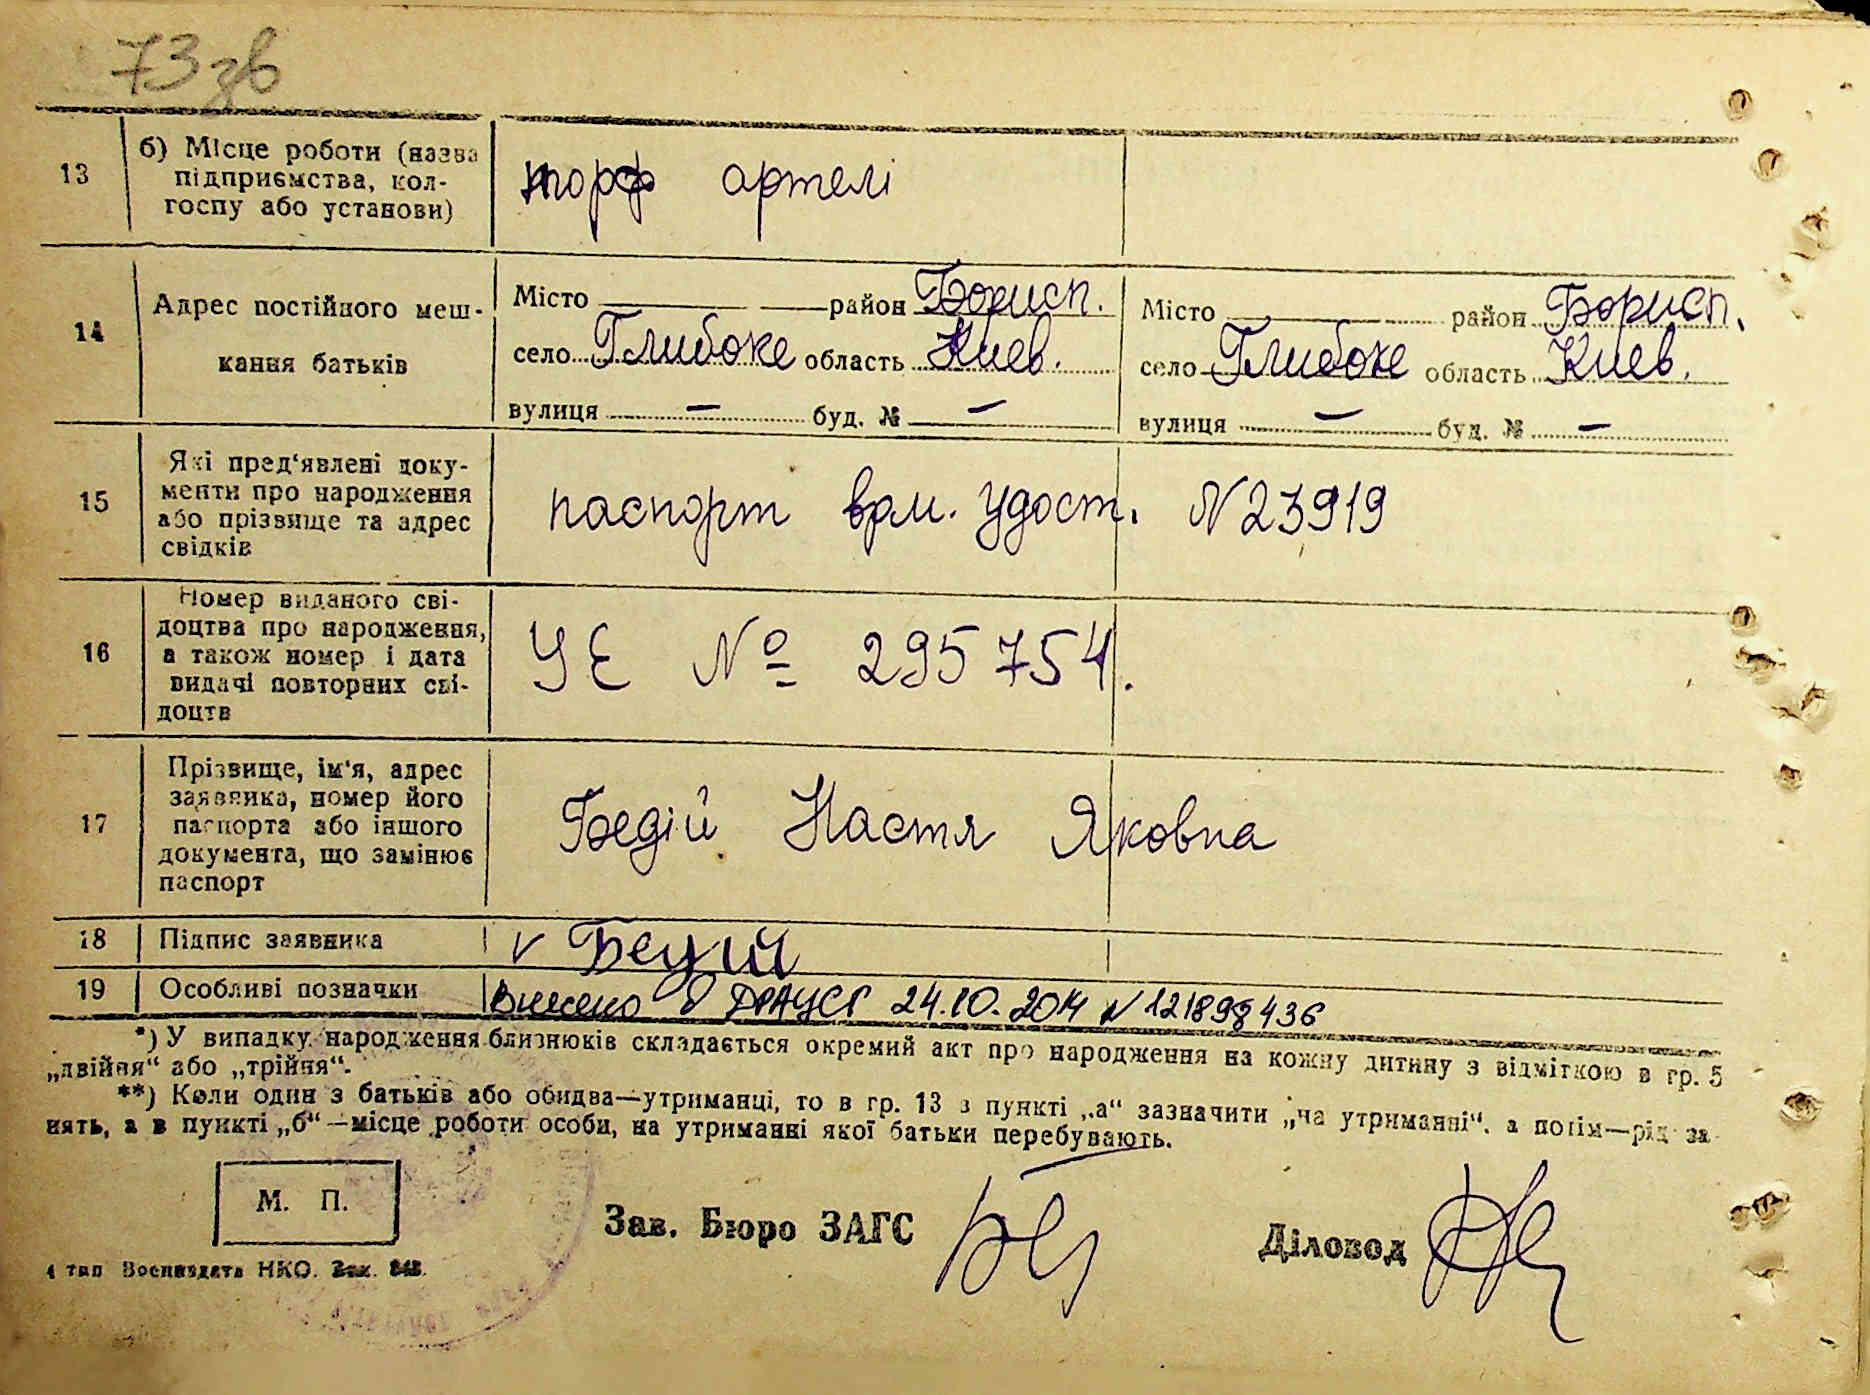 73 зв
13 б) Місце роботи (назва
підприємства, кол-
госпу або установи)
торф артелі
14 Адрес постійного меш-
кання батьків
Місто район Борисп.
село Глибоке область Киев.
вулиця — буд. № —
Місто район Борисп.
село Глибоке область Киев.
вулиця — буд. № —
15 Які пред‘явлені доку-
менти про народження
або прізвище та адрес
свідків
паспорт врм. удост. N 23919
16 Номер виданого сві-
доцтва про народження,
а також номер і дата
видачі повторних сві-
доцтв
УЕ № 295754.
17 Прізвище, ім‘я, адрес
заявника, номер його
паспорта або іншого
документа, що замінює
паспорт
Бедій Настя Яковна
18 Підпис заявника
v Бедій
19 Особливі позначки
Внесено в ДРАЦСГ 24.10.2014 N 121898436
*) У випадку народження близнюків складається окремий акт про народження на кожну дитину з відміткою в гр. 5
„двійня“ або „трійня“.
**) Коли один з батьків або обидва—утриманці, то в гр. 13 в пункті „а“ зазначити „на утриманні“, а потім—рід за-
нять, а в пункті „б“—місце роботи особи, на утриманні якої батьки перебувають.
М. П.
Зав. Бюро ЗАГС
Діловод
4 тип Воениздата НКО. Зак.